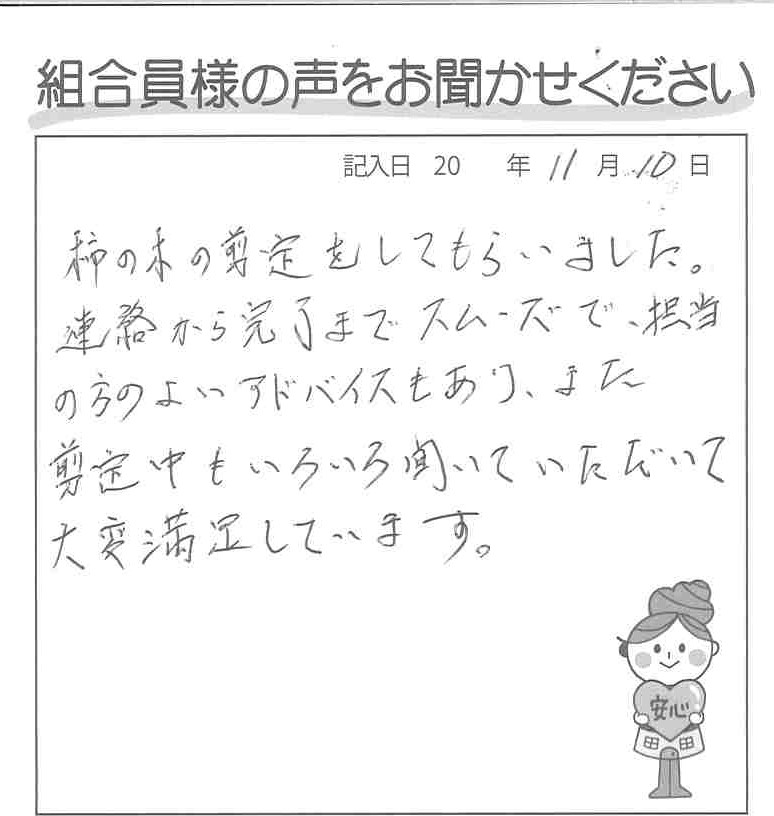 組合員様の声をお聞かせください
記入日 20 年 11 月 10 日
柿の木の剪定をしてもらいました。
連絡から完了までスムーズで、担当
の方のよいアドバイスもあり、また
剪定中もいろいろ聞いていただいて
大変満足しています。
安心